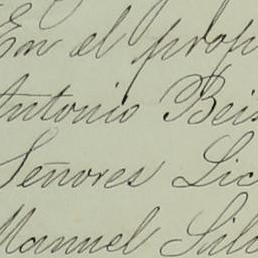 En el prop
Antonio Beis
Señores Lic
Manuel Silv